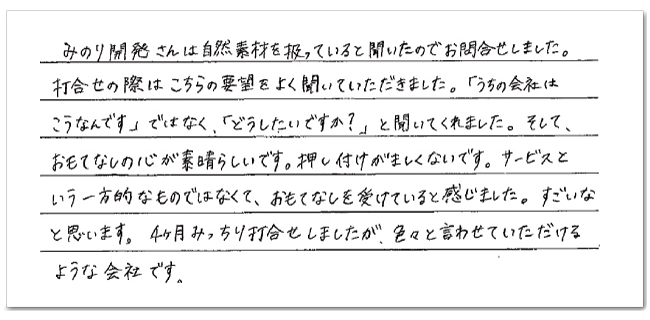 みのり開発さんは自然素材を扱っていると聞いたのでお問合せしました。
打合せの際はこちらの要望をよく聞いていただきました。「うちの会社は
こうなんです」ではなく、「どうしたいですか?」と聞いてくれました。そして、
おもてなしの心が素晴らしいです。押し付けがましくないです。サービスと
いう一方的なものではなくて、おもてなしを受けていると感じました。すごいな
と思います。4ヶ月みっちり打合せしましたが、色々と言わせていただける
ような会社です。